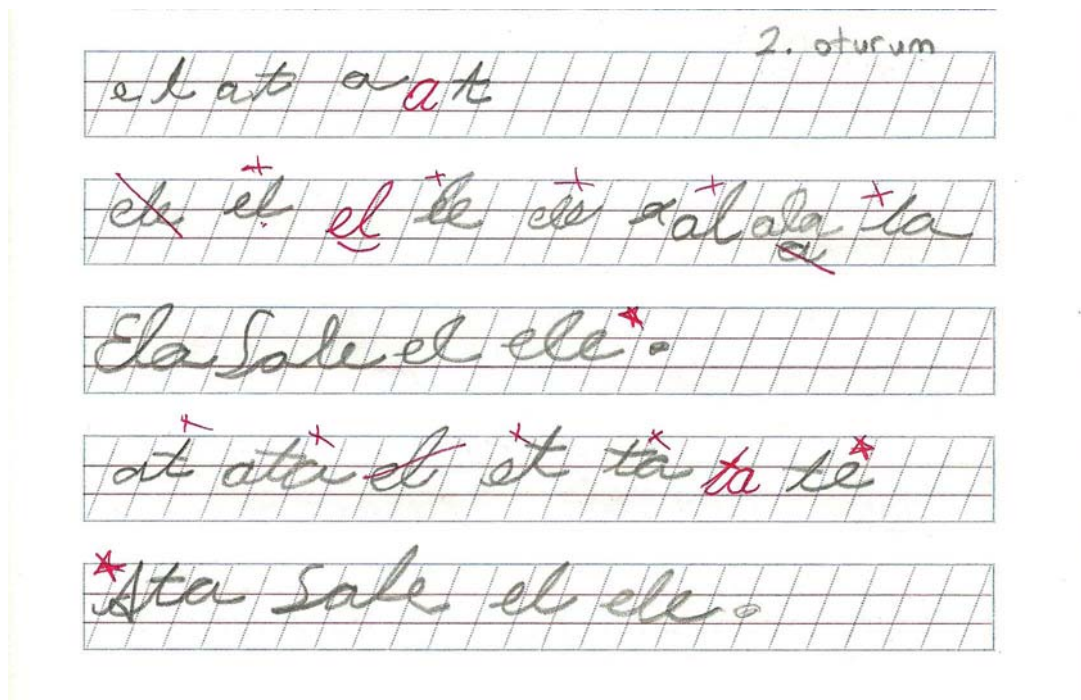 2. oturum
e l at a a t
ele el el le ele al ala a la
Ela Lale el ele.
at ata et ta ta te
Ata Lale el ele.